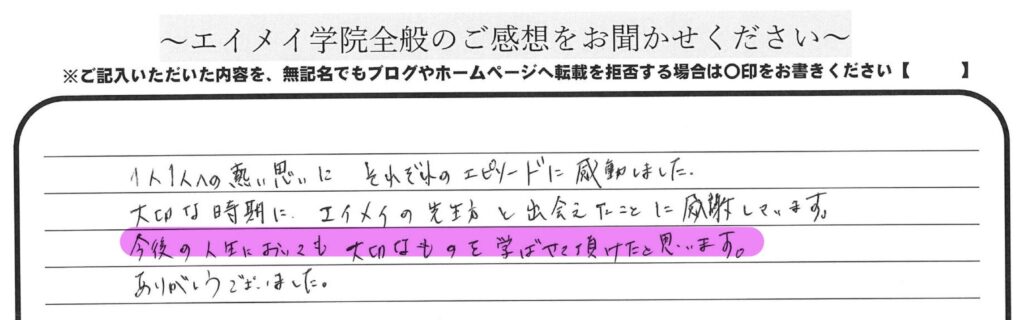 ～エイメイ学院全般のご感想をお聞かせください～
※ご記入いただいた内容を、無記名でもブログやホームページへ転載を拒否する場合は〇印をお書きください【　　】
1人1人への熱い思いに それぞれのエピソードに感動しました.
大切な時期に、エイメイの先生方と出会えたことに感謝しています。
今後の人生においても 大切なものを学ばせて頂けたと思います。
ありがとうございました。